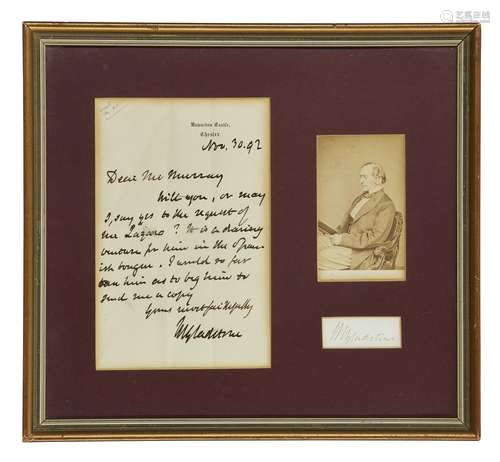 Hawarden Castle,
Chester.
Nov. 30. 92
Dear Mr Murray
Will you, or may
I, say yes to the request of
Mr Lazaro? It is a daring
venture for him in the Span-
ish tongue. I would so far
tax him as to beg him to
send me a copy
Yours most faithfully
WEGladstone
WEGladstone